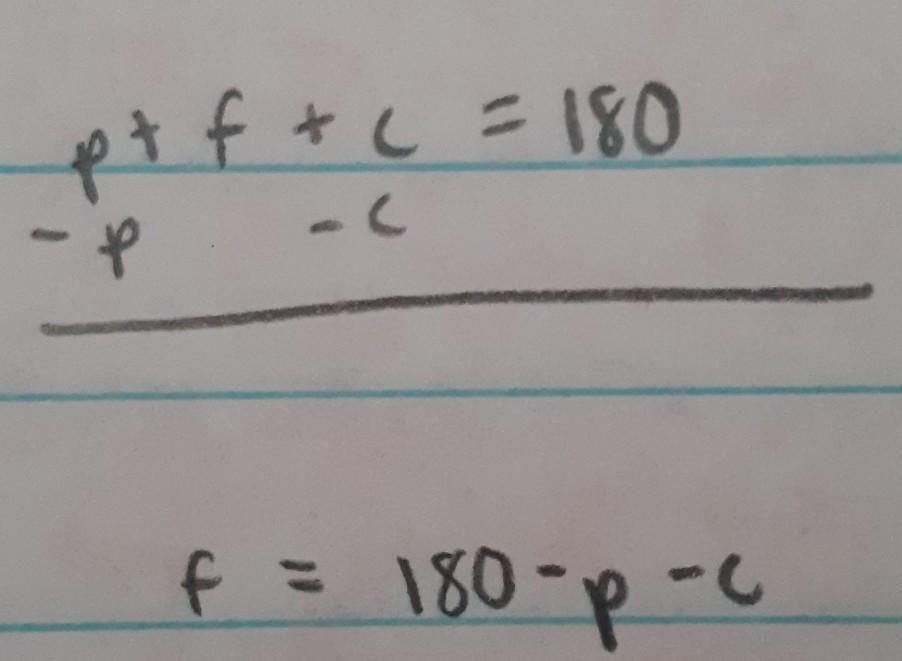 p + f + c = 180
- p - c
f = 180 - p - c